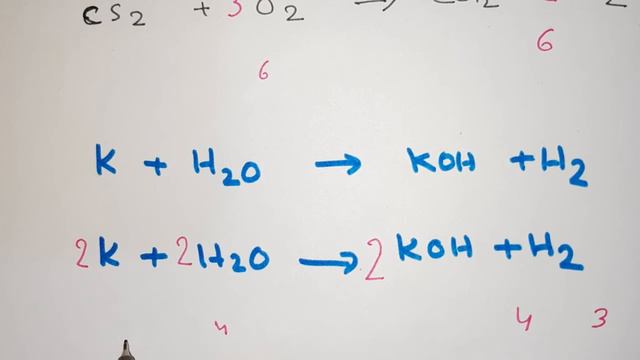 CS2 + 3O2 →
6
6
K + H2O → KOH + H2
2K + 2H2O → 2KOH + H2
4 4 3